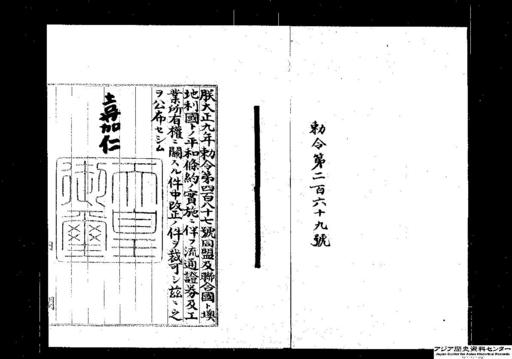 勅令第二百六十九號
朕大正九年勅令第四百八十七號同盟及聯合國ト墺
地利國トノ平和條約ノ實施ニ伴フ流通證券及工
業所有權ニ關スル件中改正ノ件ヲ裁可シ茲ニ之
ヲ公布セシム
嘉仁
天皇
御璽
アジア歴史資料センター
Japan Center for Asian Historical Records